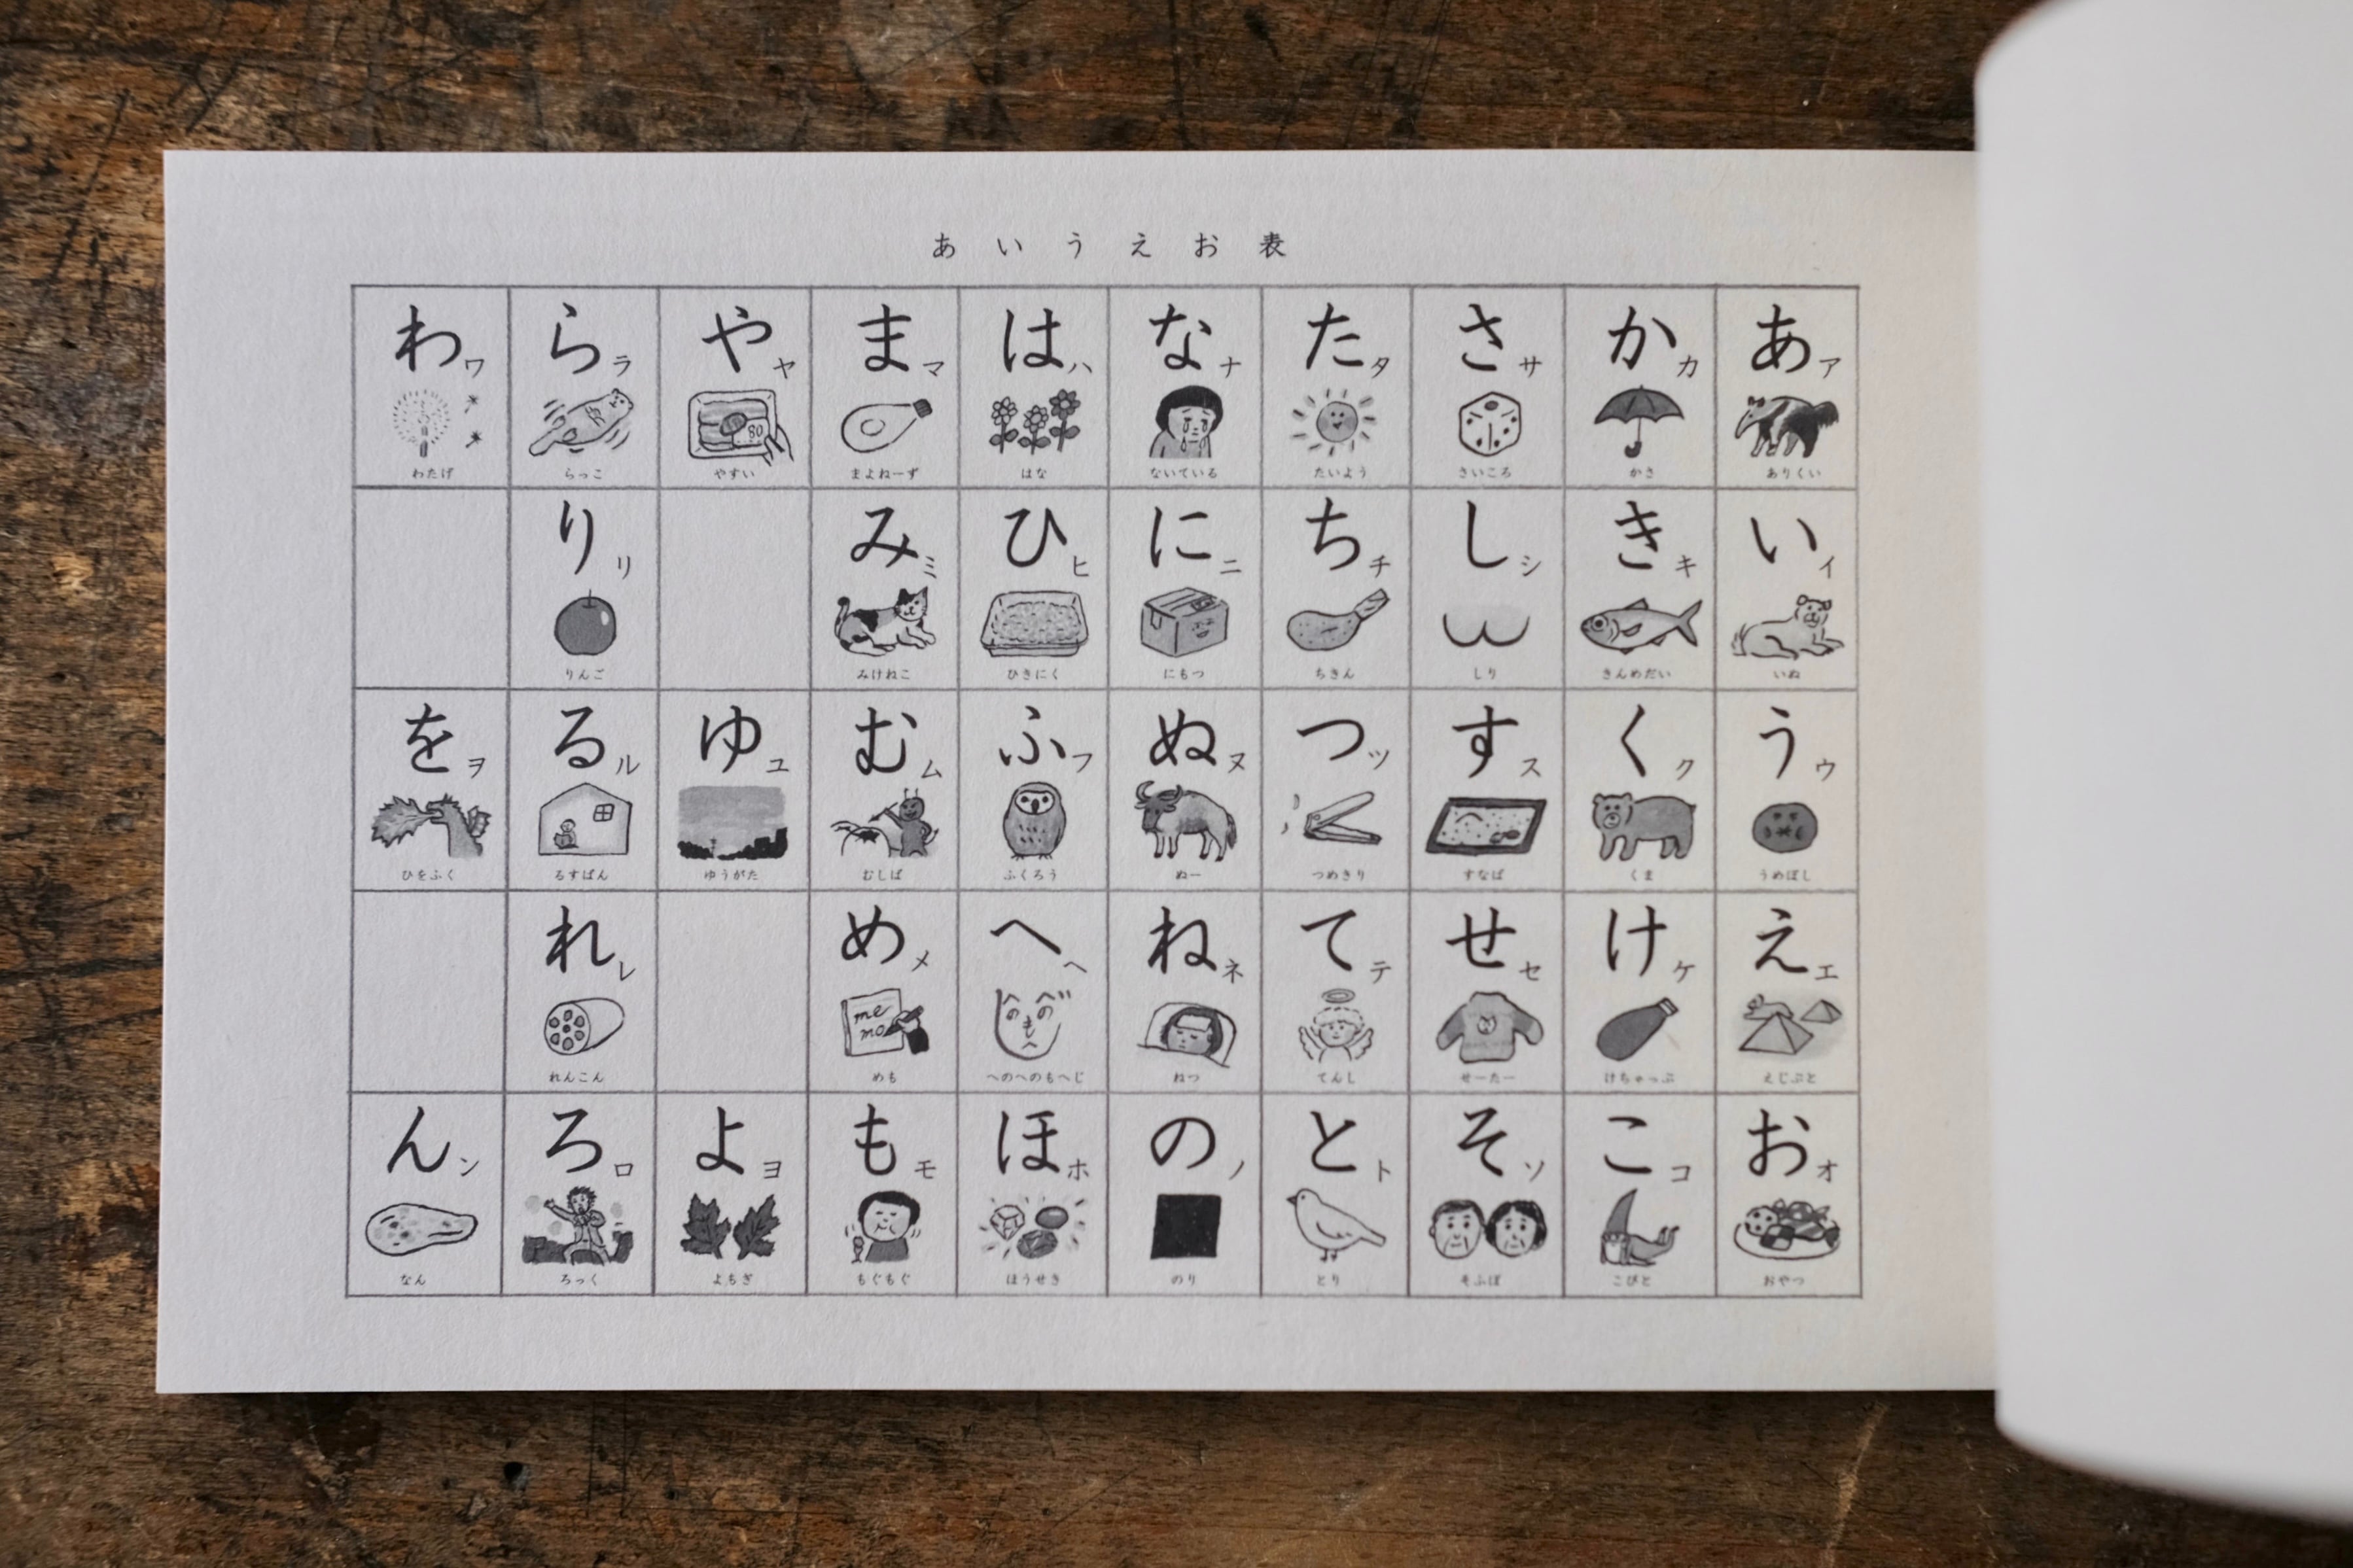 あいうえお表
あ ア ありくい
い イ いぬ
う ウ うめぼし
え エ えじぷと
お オ おやつ
か カ かさ
き キ きんめだい
く ク くま
け ケ けちゃっぷ
こ コ こびと
さ サ さいころ
し シ しり
す ス すなば
せ セ せーたー
そ ソ そふぼ
た タ たいよう
ち チ ちきん
つ ツ つめきり
て テ てんし
と ト とり
な ナ ないている
に ニ にもつ
ぬ ヌ ぬー
ね ネ ねつ
の ノ のり
は ハ はな
ひ ヒ ひきにく
ふ フ ふくろう
へ ヘ へのへのもへじ
ほ ホ ほうせき
ま マ まよねーず
み ミ みけねこ
む ム むしば
め メ me mo めも
も モ もぐもぐ
や ヤ 80 やすい
ゆ ユ ゆうがた
よ ヨ よもぎ
ら ラ らっこ
り リ りんご
る ル るすばん
れ レ れんこん
ろ ロ ろっく
わ ワ わたげ
を ヲ ひをふく
ん ン なん